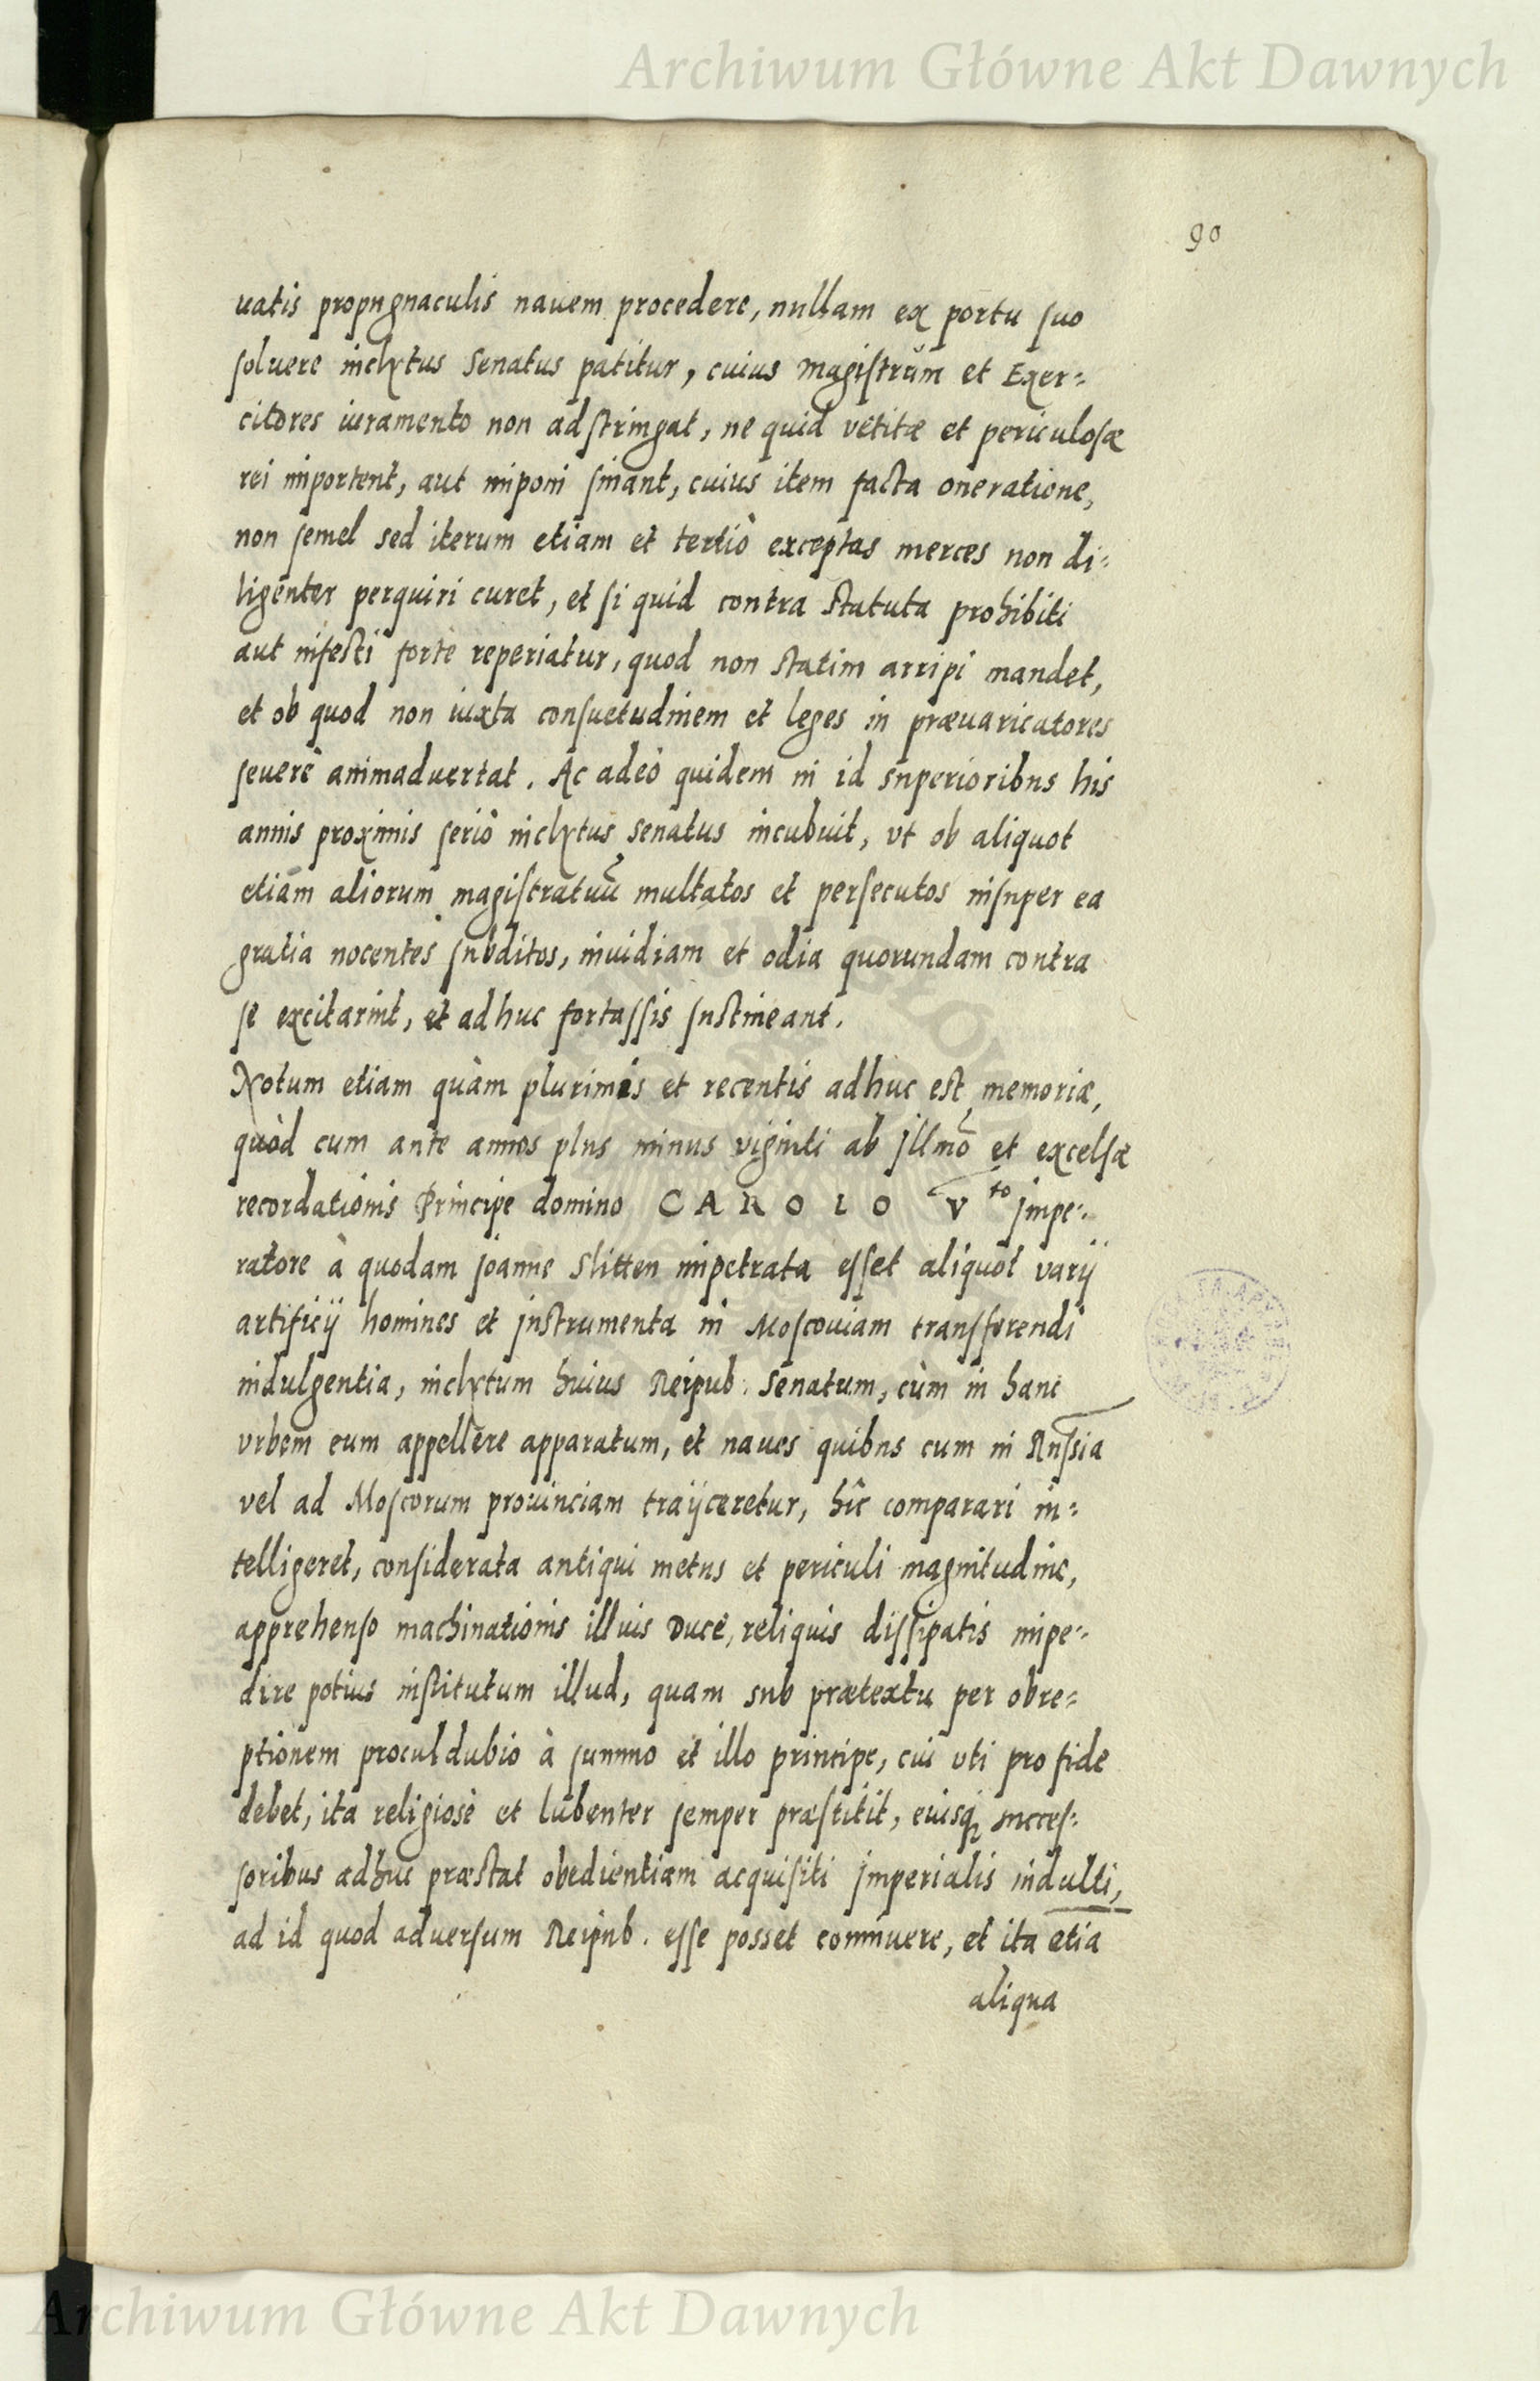 Archiwum Główne Akt Dawnych
90
uatis propugnaculis nauem procedere, nullam ex portu suo
soluere inclytus Senatus patitur, cuius magistrum et Exer=
citores iuramento non adstringat, ne quid vetitæ et periculosæ
rei importent, aut imponi sinant, cuius item facta oneratione,
non semel sed iterum etiam et tertiò exceptas merces non di=
ligenter perquiri curet, et si quid contra Statuta prohibiti
aut infesti fortè reperiatur, quod non statim arripi mandet,
et ob quod non iuxta consuetudinem et leges in præuaricatores
seuerè animaduertat. Ac adeò quidem in id superioribus his
annis proximis seriò inclytus senatus incubuit, vt ob aliquot
etiam aliorum magistratuũ multatos et persecutos insuper ea
gratia nocentes subditos, inuidiam et odia quorundam contra
se excitarint, et adhuc fortassis sustineant.
Notum etiam quàm plurimis et recentis adhuc est memoriæ,
quòd cum ante annos plus minus viginti ab Illmo et excelsæ
recordationis Principe domino CAROLO V to Impe=
ratore à quodam Joanne Slitten impetrata esset aliquot varij
artificij homines et instrumenta in Moscouiam transferendi
indulgentia, inclytum huius Reipub. Senatum, cùm in hanc
vrbem eum appellere apparatum, et naues quibus cum in Russia
vel ad Moscorum prouinciam traijceretur, hîc comparari in=
telligeret, considerata antiqui metus et periculi magnitudine,
apprehenso machinationis illius Duce, reliquis dissipatis impe=
dire potius institutum illud, quam sub prætextu per obre=
ptionem proculdubio à summo et illo principe, cui vti pro fide
debet, ita religiosè et lubenter semper præstitit, eiusq; succes=
soribus adhuc præstat obedientiam acquisiti Imperialis indulti,
ad id quod aduersum Reipub. esse posset conniuere, et ita etiã
aliqua
Archiwum Główne Akt Dawnych